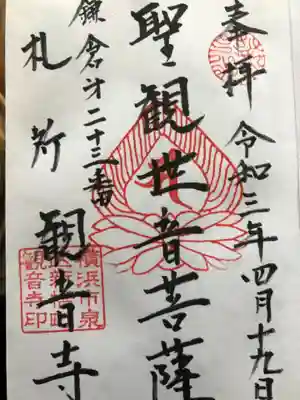 奉拝 令和三年四月十九日
聖観世音菩薩
鎌倉才二十三番
札所
観音寺
横浜市泉
観音寺印